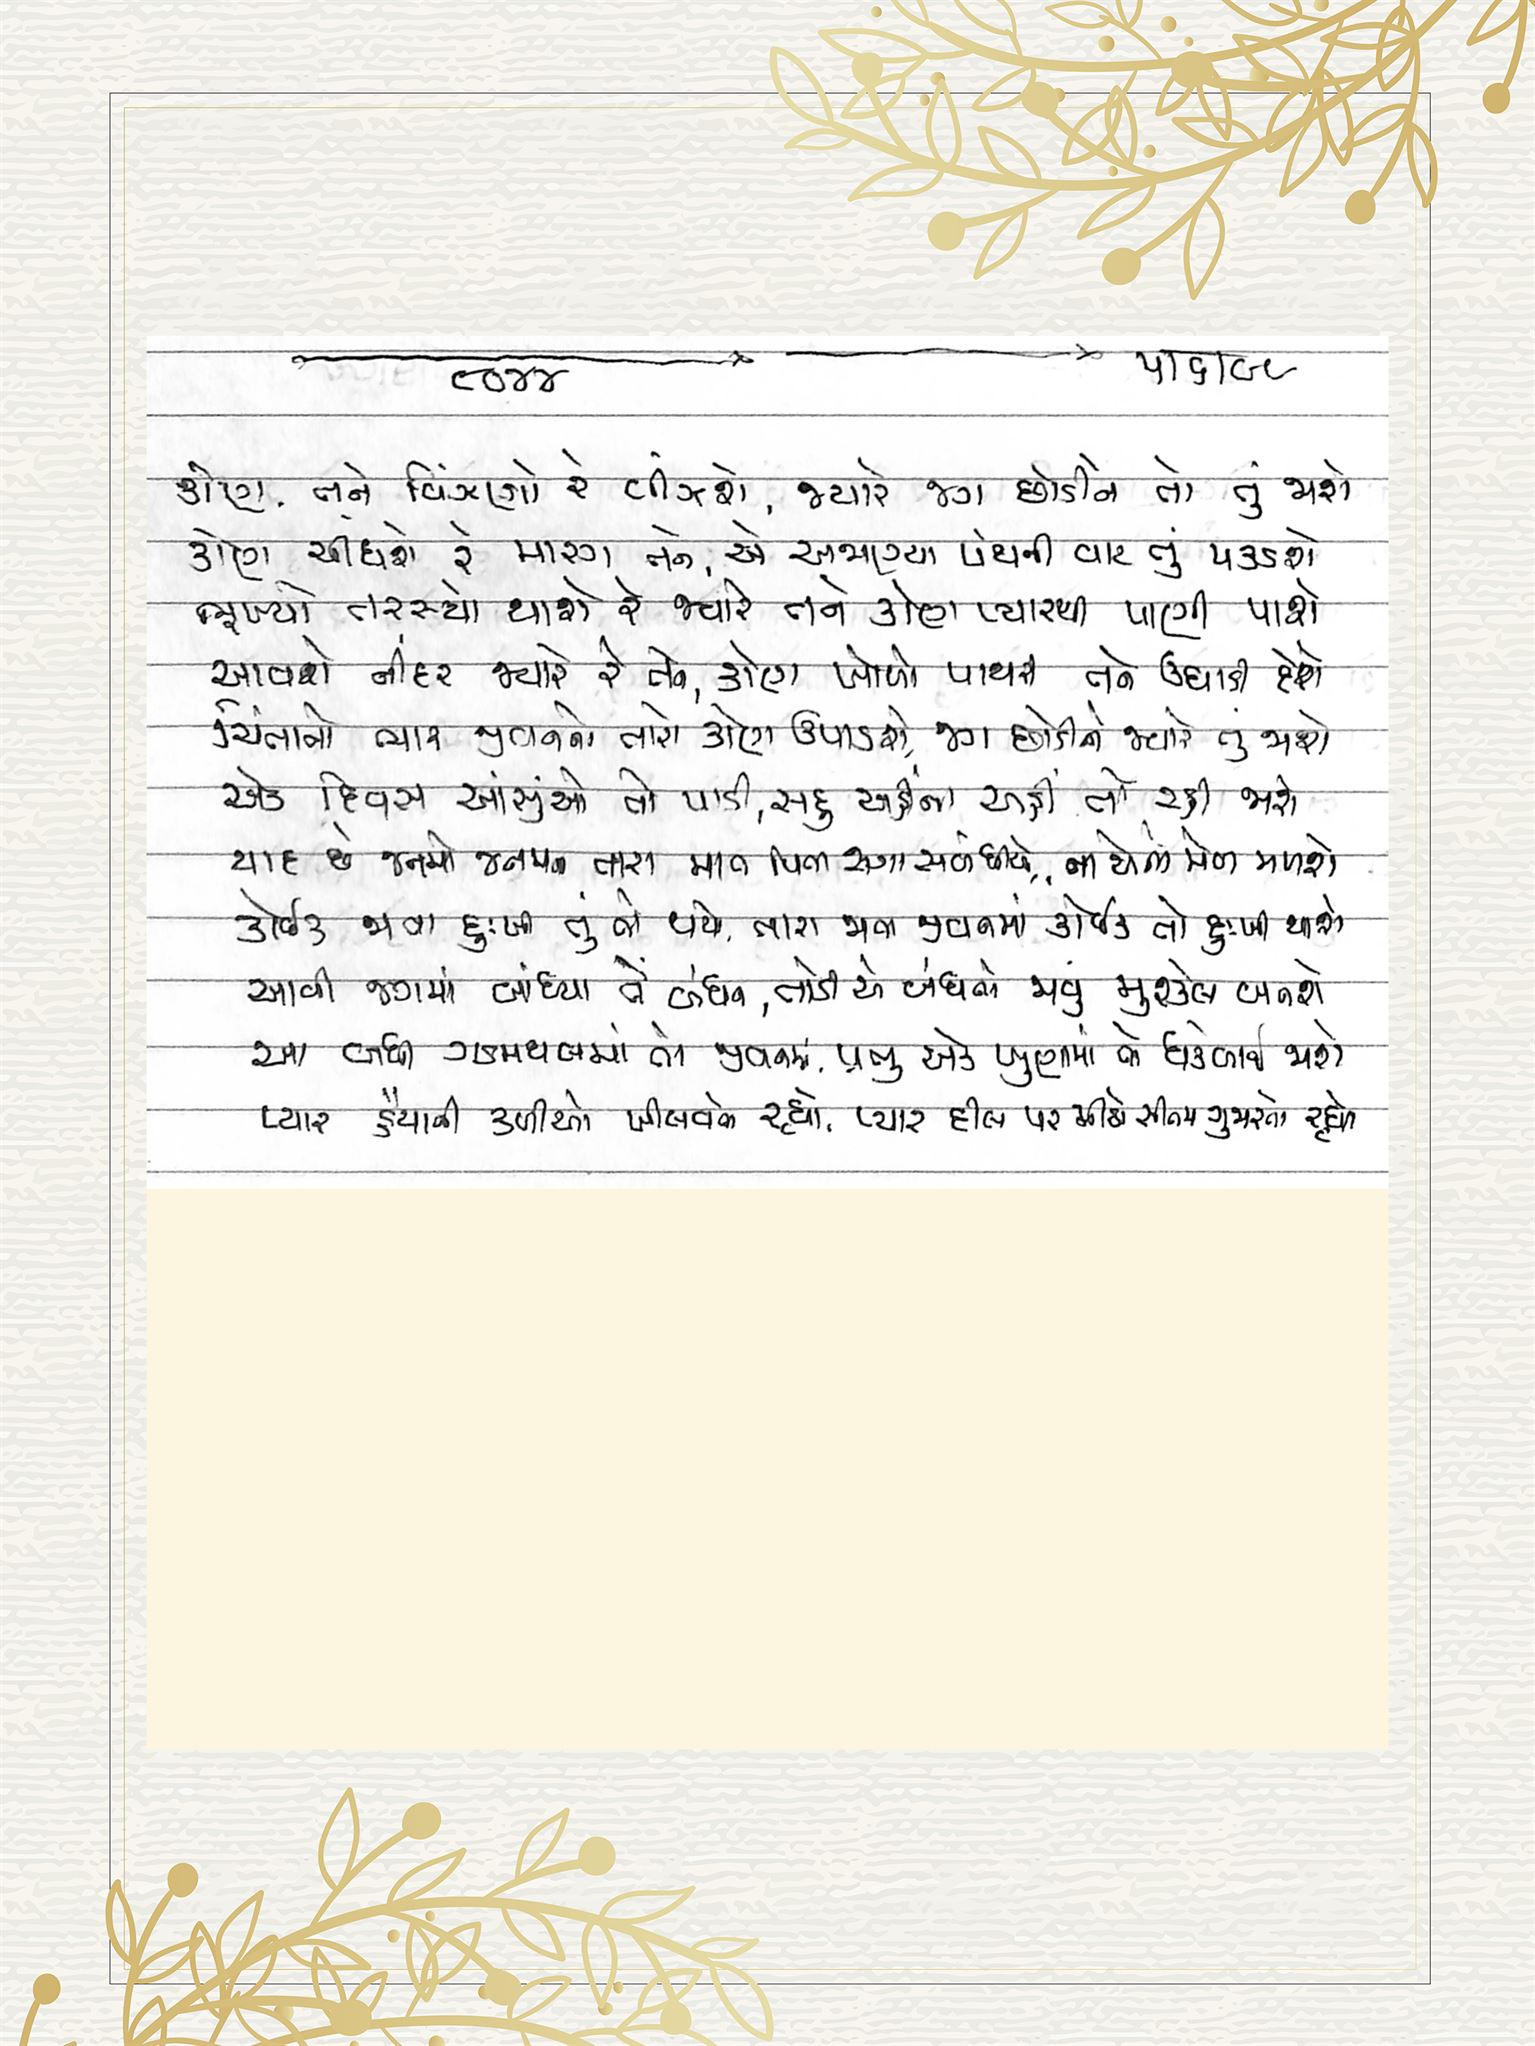 ૯૦૪૪ ૫।૬।૦૯
કોણ. તને વિંઝણો રે વીંઝશે, જ્યારે જગ છોડીને તો તું જાશે
કોણ ચીંધશે રે મારગ તને, એ અજાણ્યા પંથની વાટ તું પકડશે
ભૂખ્યો તરસ્યો થાશે રે જ્યારે તને કોણ પ્યારથી પાણી પાશે
આવશે નીંદર જ્યારે રે તને, કોણ ખોળો પાથરી તને ઉઘાડી દેશે
ચિંતાનો ભાર જીવનનો તારો કોણ ઉપાડશે, જગ છોડીને જ્યારે તું જાશે
એક દિવસ આંસુંઓ તો પાડી, સહુ અહીંના અહીં તો રહી જાશે
યાદ છે જનમો જનમના તારા માત પિતા સગા સબંધીયે,, ના એનો મેળ મળશે
કોઈક જાતા દુઃખી તું તો થયો. તારા જાતા જીવનમાં કોઈક તો દુઃખી થાશે
આવી જગમાં બાંધ્યા તેં બંધન, તોડી એ બંધનો જાવું મુશ્કેલ બનશે
આ બધી ગડમથલમાં તો જીવનમાં. પ્રભુ એક ખુણામાં તો ધકેલાઈ જાશે
પ્યાર હૈયાની કળીઓ ખીલવતો રહ્યો. પ્યાર દીલ પર મીઠો સીતમ ગુજારતો રહ્યો